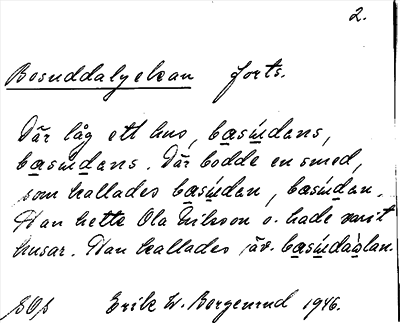 2.
Bosuddalyckan forts.
Där låg ett hus, bɷsúdans,
bɷsúdans. Där bodde en smed,
som kallades bɷsúdan, bɷsúdan.
Han hette Ola Nilsson o. hade varit
husar. Han kallades äv. bɷsúdaòlan.
Erik W. Borgenud 1946.